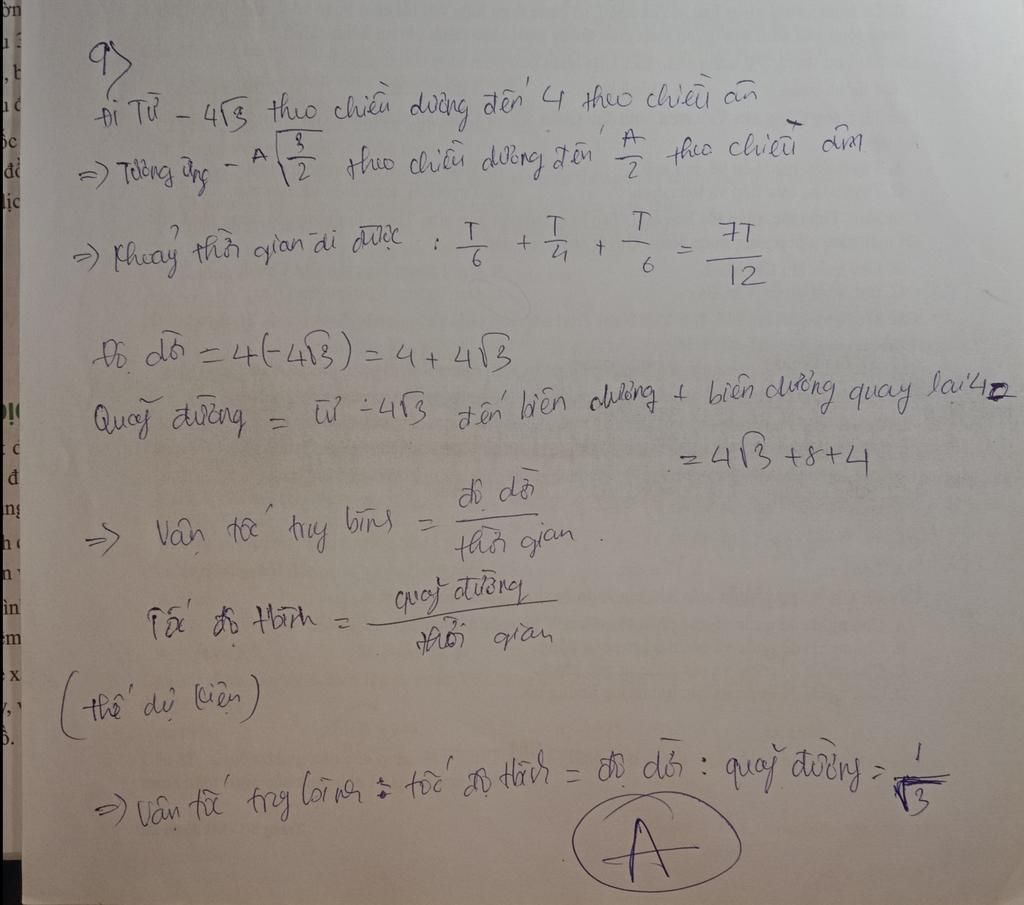 9)
Đi Từ - 4√3 theo chiều dương đến 4 theo chiều ân
=> Tương ứng - A√(3/2) theo chiều dương đến A/2 theo chiều âm
=> Khoảng thời gian đi được : T/6 + T/4 + T/6 = 7T/12
Độ dời = 4(-4√3) = 4 + 4√3
Quãng đường = từ -4√3 đến biên dương + biên dương quay lại 4
= 4√3 + 8 + 4
=> Vận tốc trung bình = độ dời / thời gian
Tốc độ tbình = quãng đường / thời gian
(thế dự kiện)
=> Vận tốc trung bình : tốc độ tbình = độ dời : quãng đường = 1/√3
A